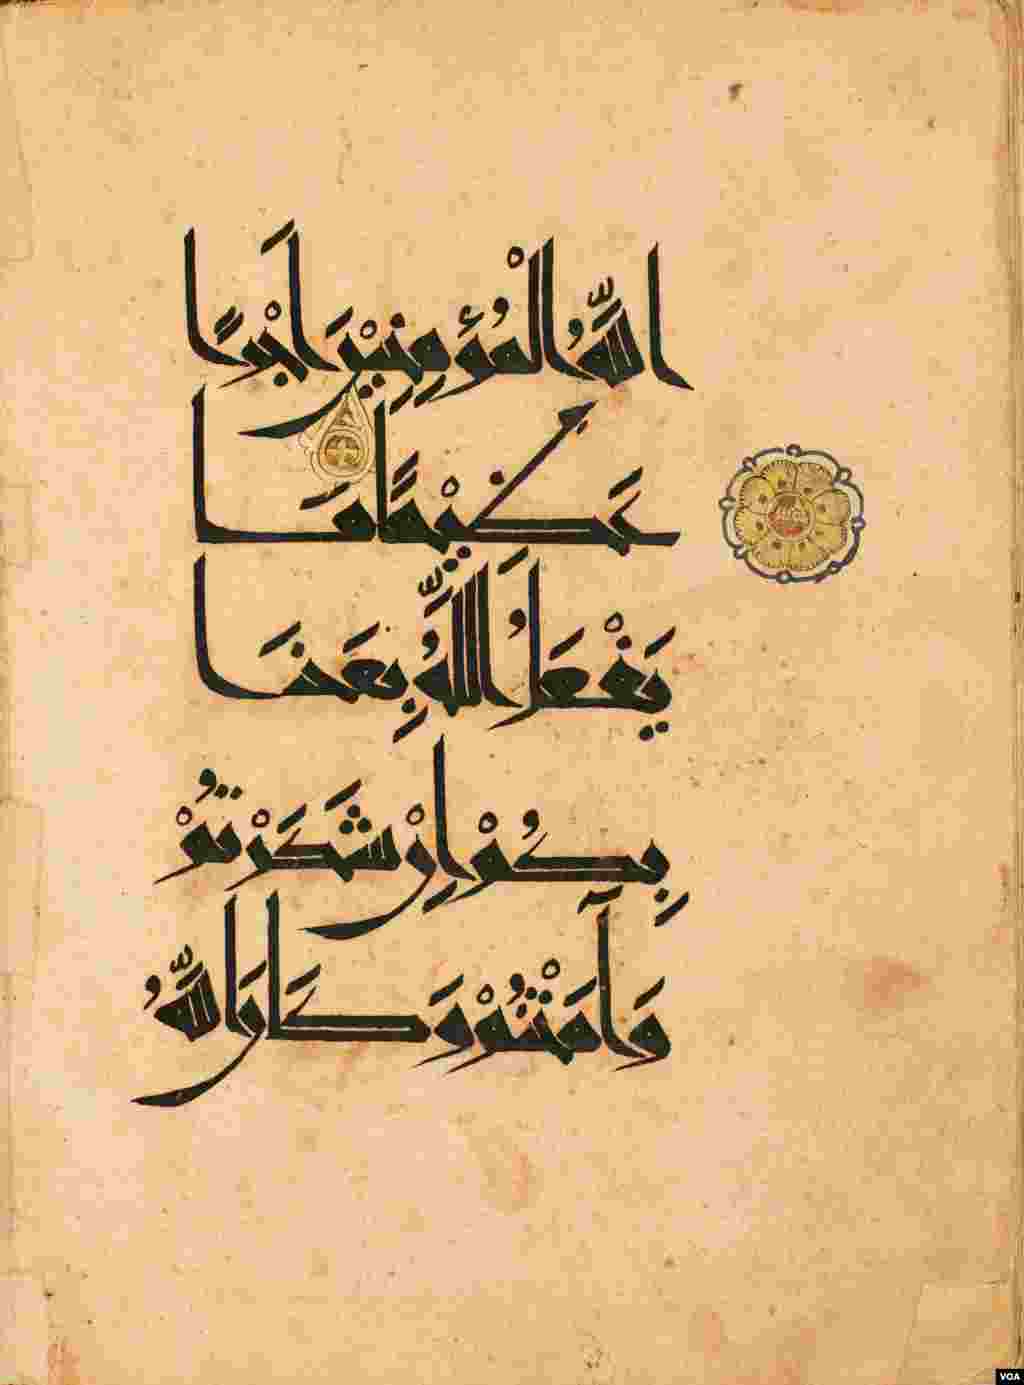 اللَّهُ الْمُؤْمِنِينَ أَجْرًا
عَظِيمًا مَا
يَفْعَلُ اللَّهُ بِعَذَا
بِكُمْ إِنْ شَكَرْتُمْ
وَآمَنْتُمْ وَكَانَ اللَّهُ
VOA